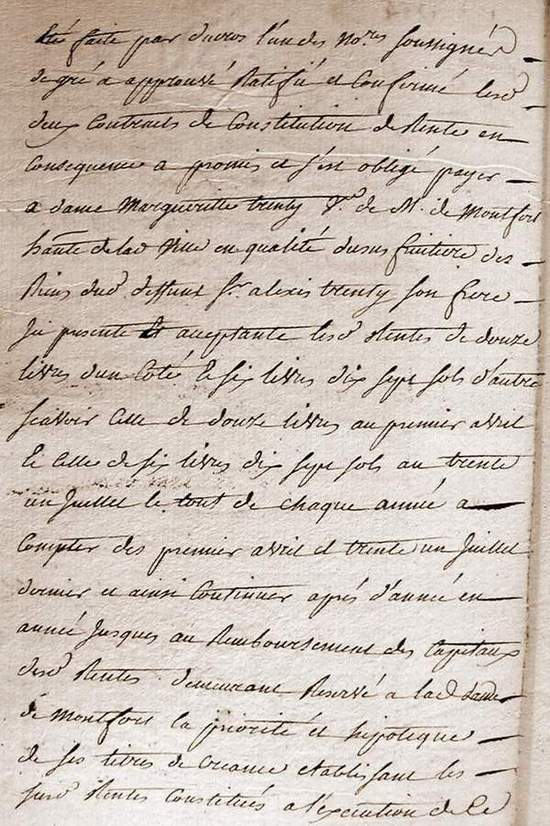 été faite par Ducros l'un des no.res soussignés
de gré a approuvé Ratifié et Confirmé lesd.
deux Contrats de Constitution de Rente en
Consequence a promis et s'est obligé payer
a dame Margueritte trenty V.e de M. de Montfort
hante de lad. Ville en qualité dusufruitiere des
Biens dud. deffunt S.r alexis trenty son frere
Ici presente et acceptante lesd. Rentes de douze
livres d'un Coté & six livres dix sept sols d'autre
scavoir Celle de douze livres au premier avril
& Celle de six livres dix sept sols au trente
un Juillet le tout de chaque année a
Compter des premier avril et trente un Juillet
dernier et ainsi Continuer aprés d'année en
année Jusques au Remboursement des Capitaux
desd. Rentes demeurant Reservé a lad. dame
de Montfort la priorité et hipoteque
de ses titres de Creance etablissant les
susd. Rentes Constitués a l'execution de Ce